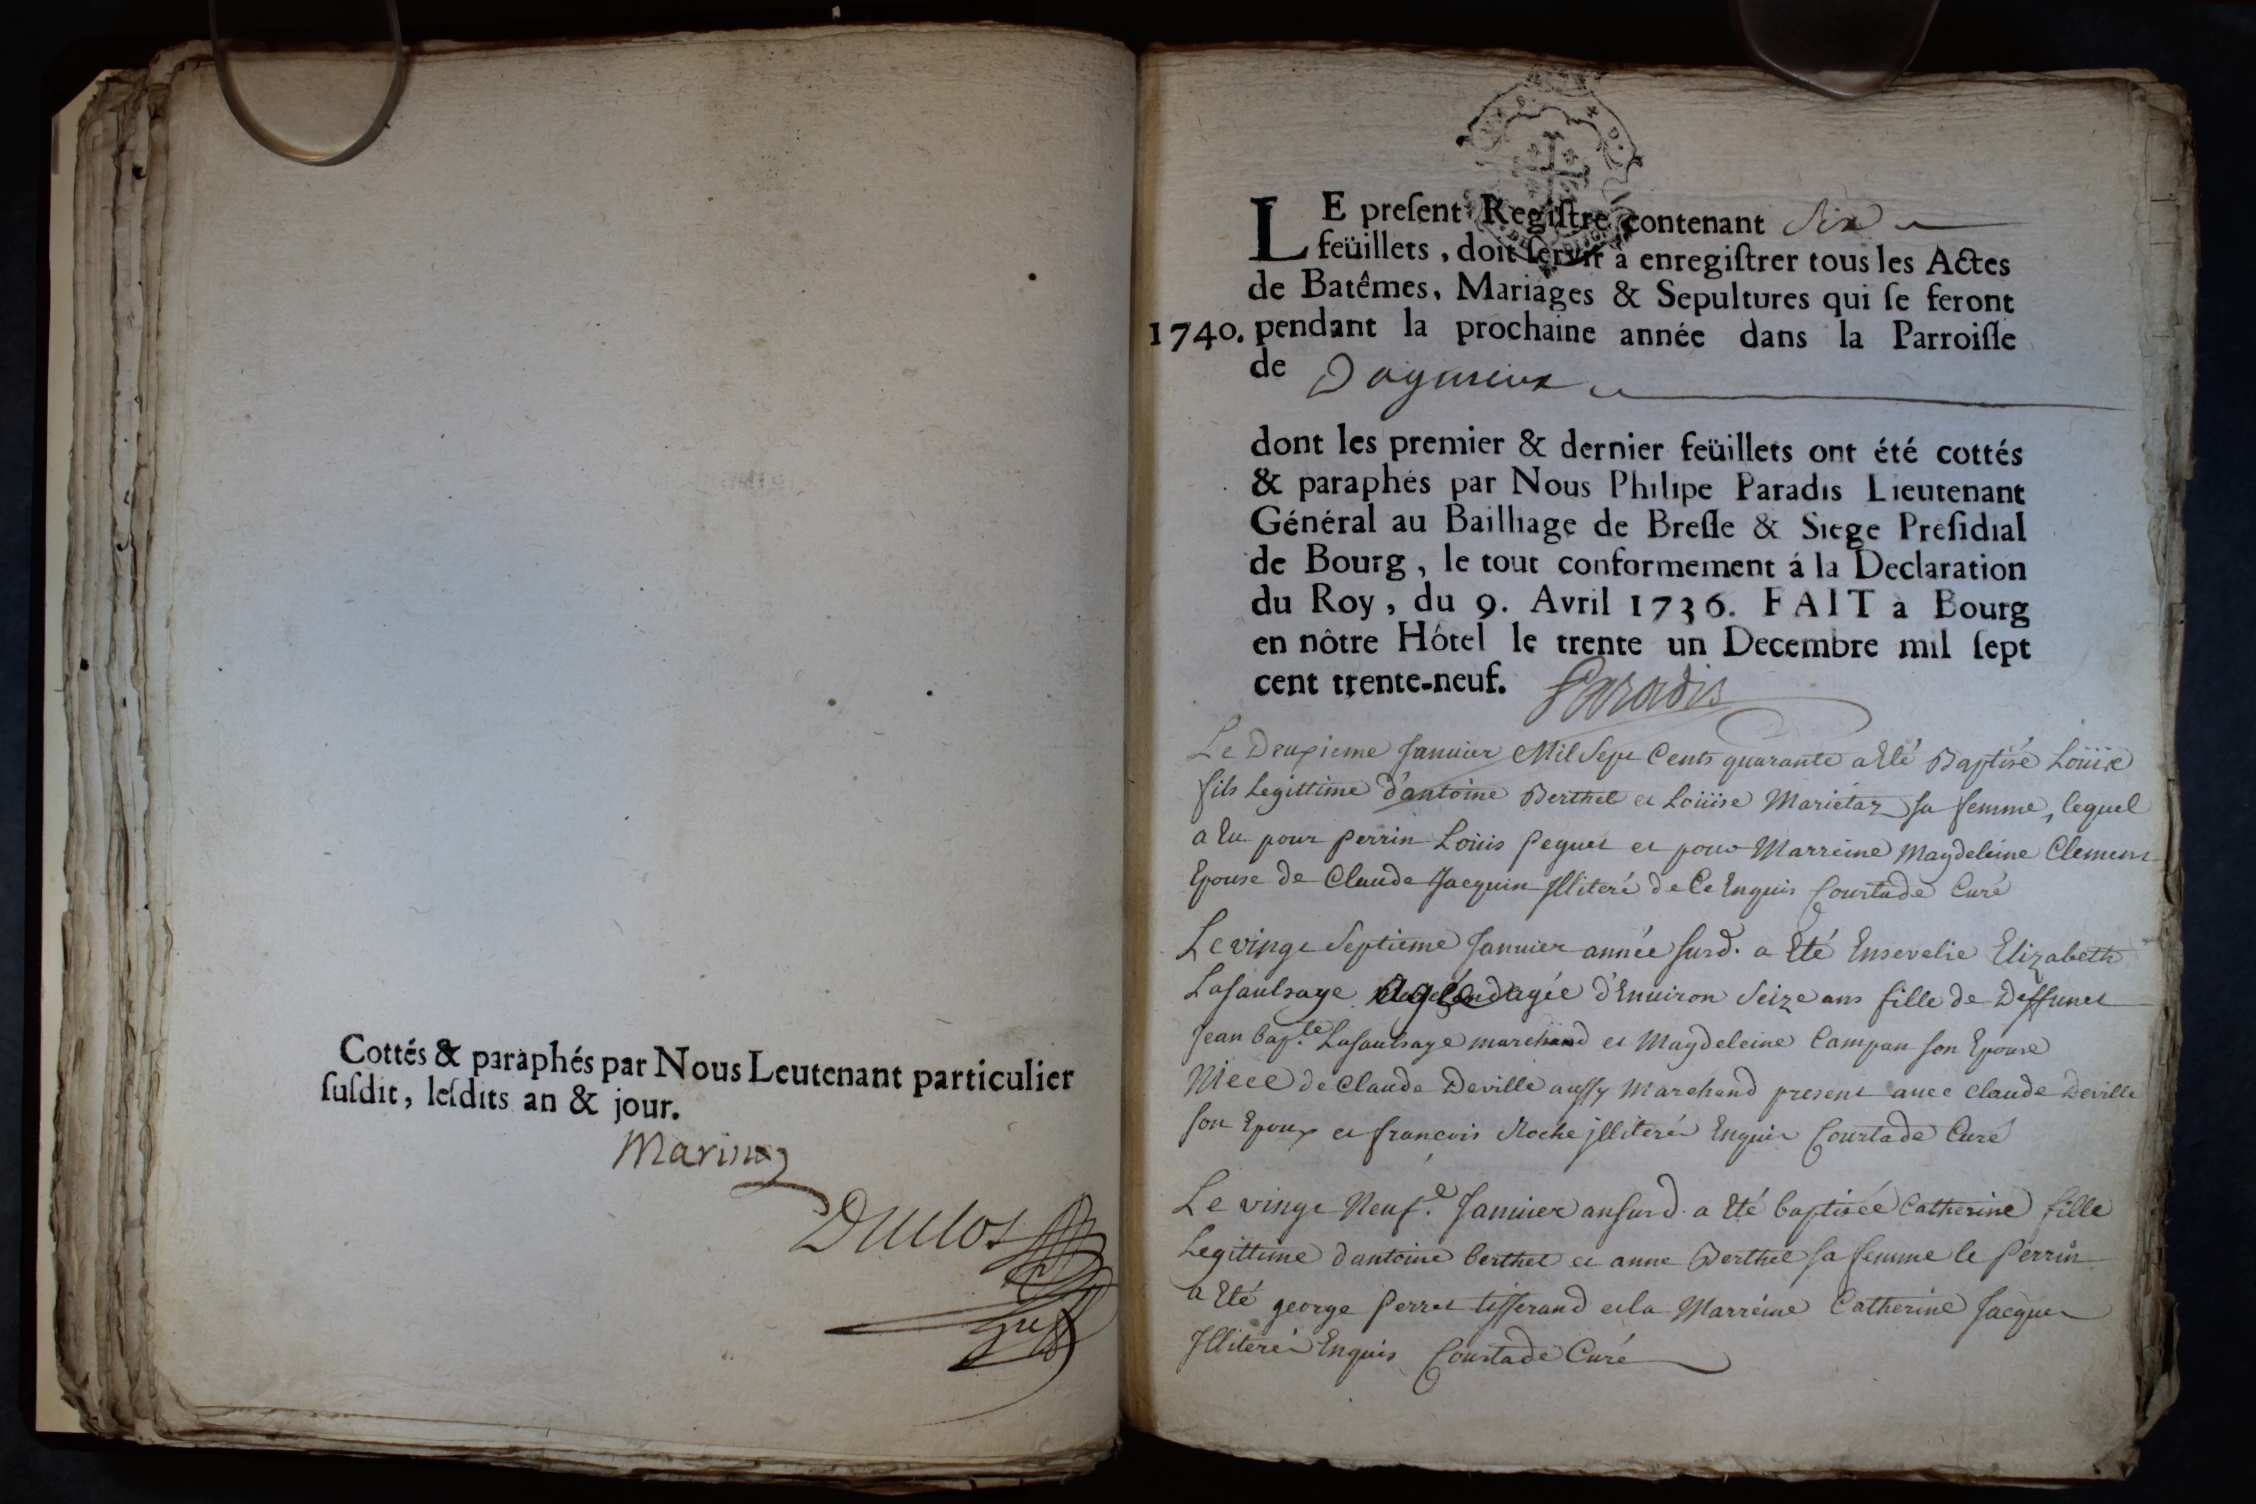 Cottés & paraphés par Nous Leutenant particulier
suſdit, leſdits an & jour.
Duclos
LE preſent Regiſtre contenant Six
feüillets, doit ſervir à enregiſtrer tous les Actes
de Batêmes, Mariages & Sepultures qui ſe feront
1740. pendant la prochaine année dans la Parroiſſe
de Dagnieux
dont les premier & dernier feüillets ont été cottés
& paraphés par Nous Philipe Paradis Lieutenant
Général au Bailliage de Breſſe & Siege Preſidial
de Bourg, le tout conformement á la Declaration
du Roy, du 9. Avril 1736. FAIT à Bourg
en nôtre Hôtel le trente un Decembre mil ſept
cent trente-neuf. Paradis
Le Deuxieme Janvier Mil Sept Cents quarante a Eté Baptisé Loüis
fils Legittime d'antoine Berthet et Loüise Mariétaz sa femme, lequel
a Eu pour perrin Loüis peguet et pour Marreine Magdeleine Clement
Epouse de Claude Jacquin Illiteré de Ce Enquis Courtade Curé
Le vingt Septieme Janvier année susd. a Eté Ensevelie Elizabeth
Lasaulsaye agée d'Environ Seize ans fille de Deffunct
Jean bap.te Lasaulsaye marchand et Magdeleine Campan son Epouse
Niece de Claude Deville aussy Marchand present avec Claude Deville
son Epoux et francois Roche jlliterés Enquis Courtade Curé
Le vingt Neuf.e Janvier an susd. a Eté baptisée Catherine fille
Legittime dantoine berthet et anne Berthet sa femme le Perrin
a Eté george Perret tisserand et la Marreine Catherine Jacquet
Illiterés Enquis Courtade Curé